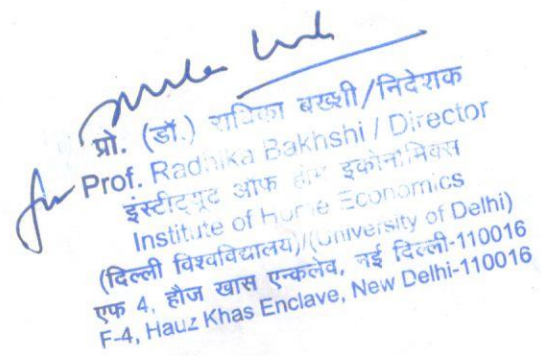 प्रो. (डॉ.) राधिका बख्शी/निदेशक
Prof. Radhika Bakhshi / Director
इंस्टीट्यूट ऑफ होम इकोनॉमिक्स
Institute of Home Economics
(दिल्ली विश्वविद्यालय)/(University of Delhi)
एफ 4, हौज खास एन्कलेव, नई दिल्ली-110016
F-4, Hauz Khas Enclave, New Delhi-110016